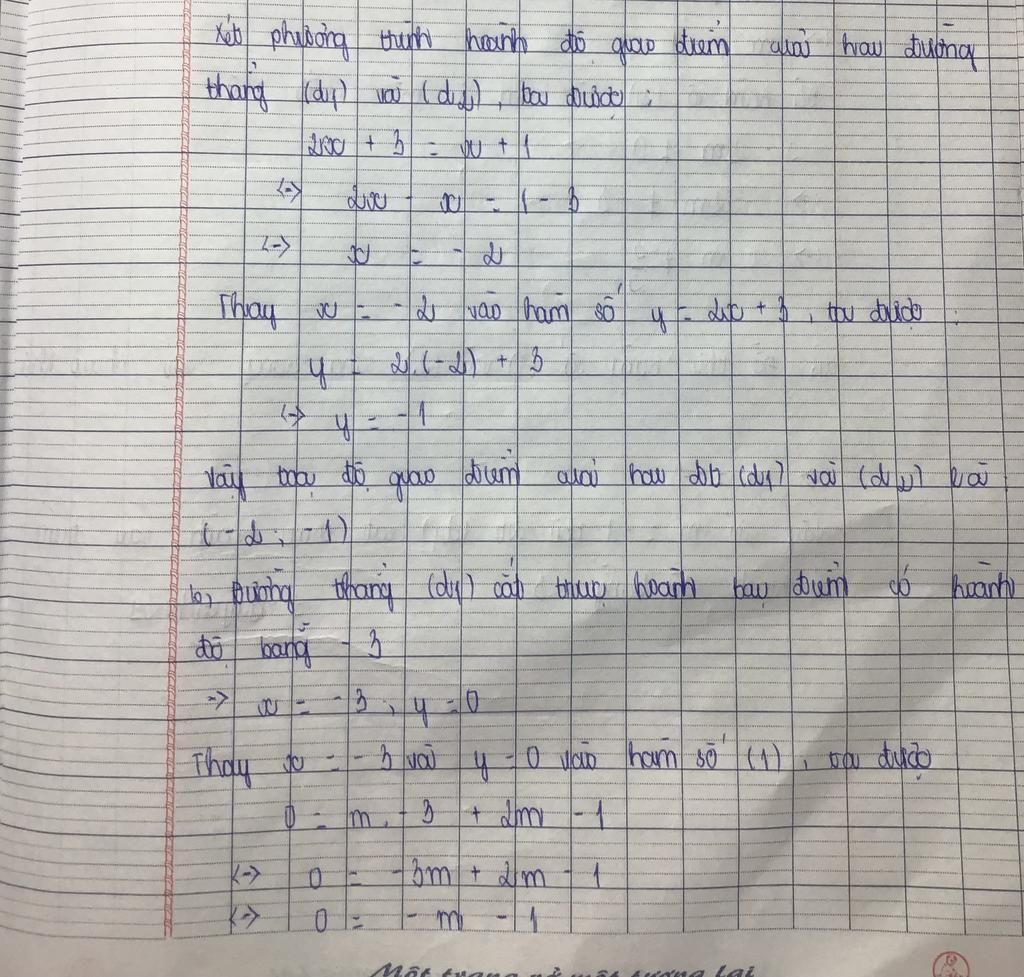 Xét phương trình hoành độ giao điểm của hai đường
thẳng (d1) và (d2), ta được :
2x + 3 = x + 1
<=> 2x - x = 1 - 3
<=> x = - 2
Thay x = - 2 vào hàm số y = 2x + 3, ta được :
y = 2.(-2) + 3
<=> y = - 1
Vậy toạ độ giao điểm của hai đt (d1) và (d2) là
(-2 ; -1)
b, Đường thẳng (d1) cắt trục hoành tại điểm có hoành
độ bằng - 3
=> x = - 3 , y = 0
Thay x = - 3 và y = 0 vào hàm số (1), ta được
0 = m. - 3 + 2m - 1
<=> 0 = - 3m + 2m - 1
<=> 0 = - m - 1
Một trang vở một tương lai